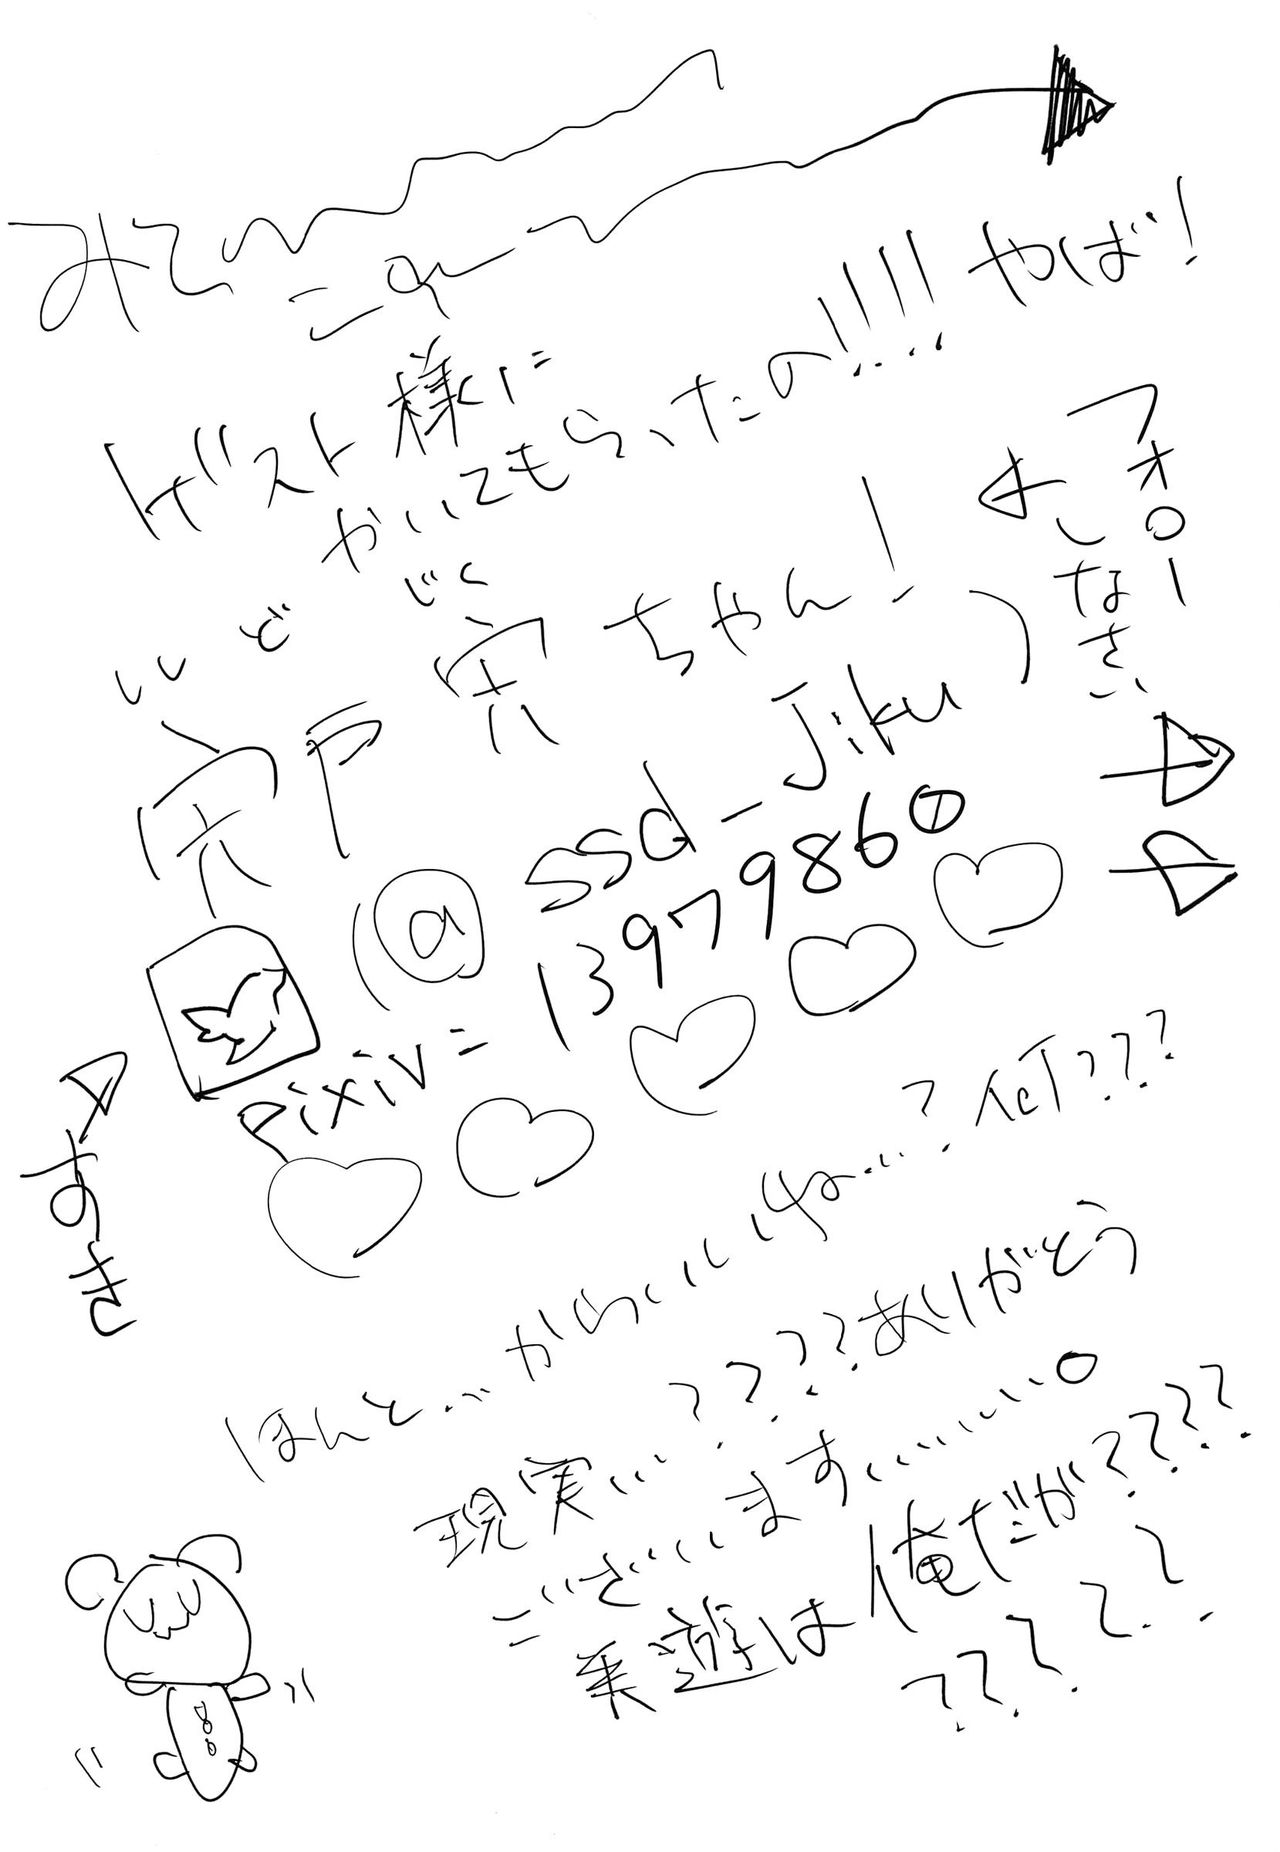 みて
これ
ゲスト様に
かいてもらったの!!!! やば!
フォロー
しなさい
ししど じく
宍戸 宍ちゃん!
(@ssd_Jiku)
pixiv=13979860
すき
ほんと...かわいいね...?何???
現実...????ありがとう
ございます......。
乗遊は俺だが????
?????